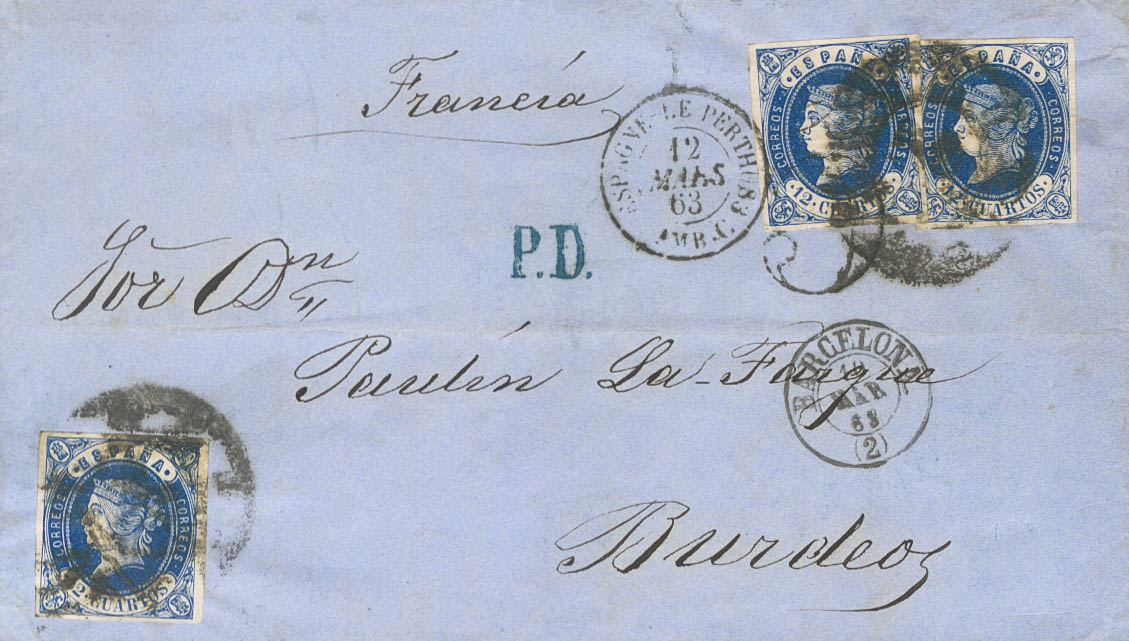 Francia
ESPAGNE-LE PERTHUS 3
12
MARS
63
AMB.C.
ESPAÑA
CORREOS
CORREOS
12 CUARTOS
ESPAÑA
CORREOS
CORREOS
12 CUARTOS
P.D.
Sor Dn
BARCELONA
MAR
63
(2)
Paulin La-Fargue
ESPAÑA
CORREOS
CORREOS
12 CUARTOS
Burdeos